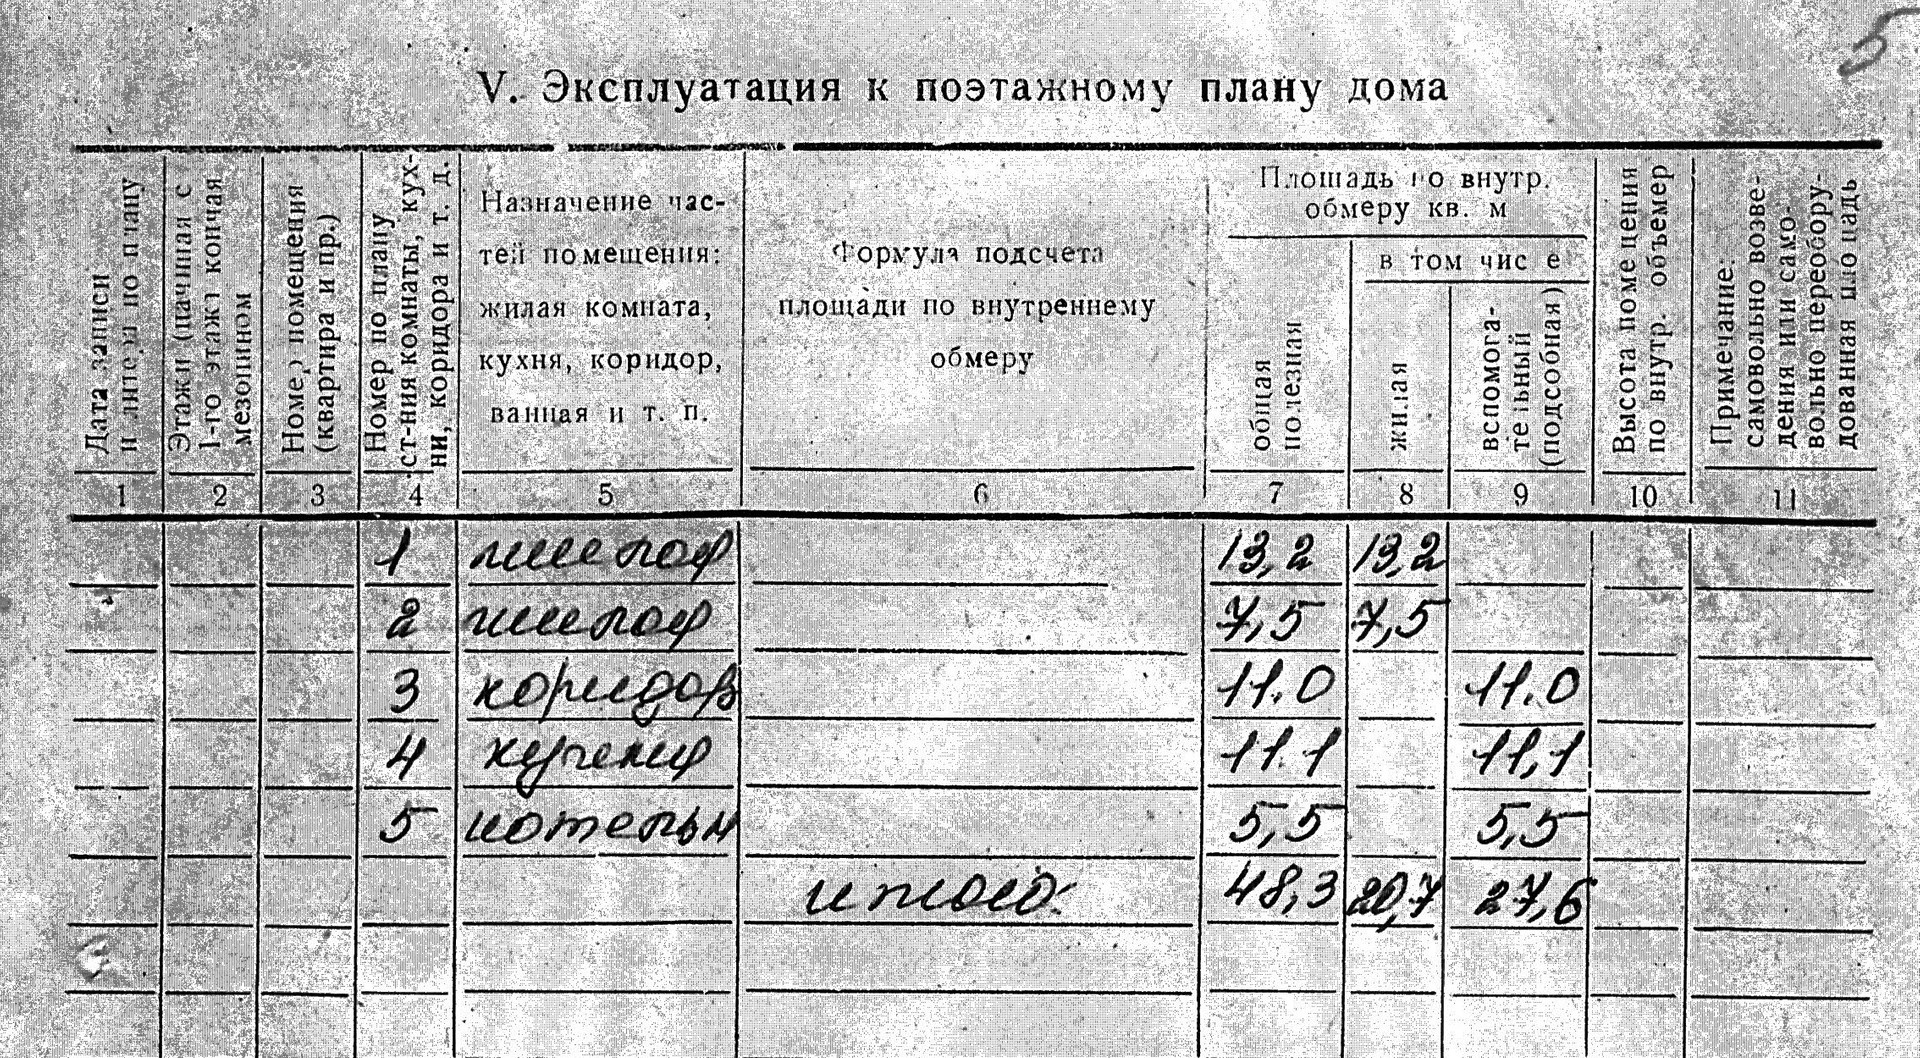 5
V. Эксплуатация к поэтажному плану дома
Дата записи
и литера по плану
Этажи (начиная с
1-го этажа кончая
мезонином
Номер помещения
(квартира и пр.)
Номер по плану
ст-ния комнаты, кух-
ни, коридора и т. д.
Назначение час-
тей помещения:
жилая комната,
кухня, коридор,
ванная и т. п.
Формула подсчета
площади по внутреннему
обмеру
Площадь по внутр.
обмеру кв. м
в том числе
общая
полезная
жилая
вспомога-
тельный
(подсобная)
Высота помещения
по внутр. объемер
Примечание:
самовольно возве-
дения или само-
вольно переобору-
дованная площадь
1 2 3 4 5 6 7 8 9 10 11
1 жилая 13,2 13,2
2 жилая 7,5 7,5
3 коридор 11.0 11.0
4 кухня 11.1 11,1
5 котельн 5,5 5,5
итого: 48,3 20,7 27,6